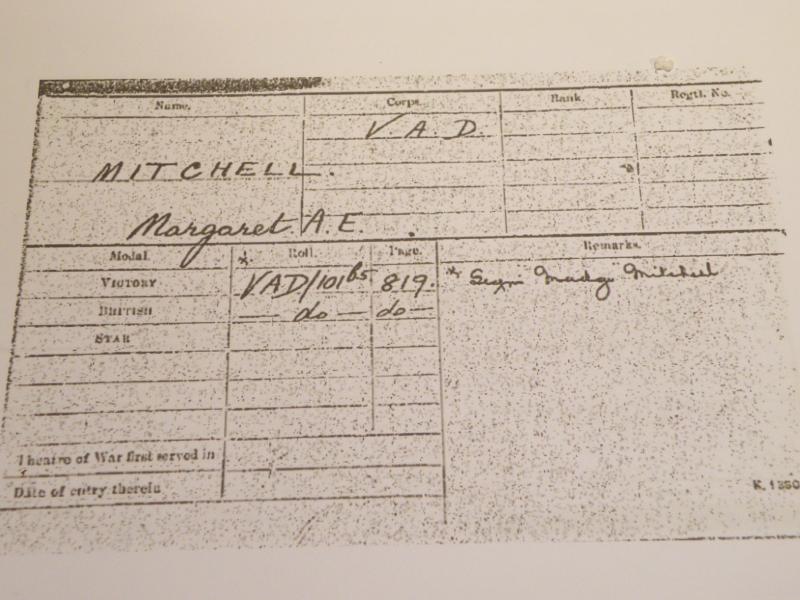 Name. Corps. Rank. Regtl. No.
V. A. D.
MITCHELL.
Margaret A.E.
Medal. Roll. Page. Remarks.
VICTORY * VAD/101B5 819. * Madge Mitchell
BRITISH — do — do —
STAR
Theatre of War first served in
Date of entry therein
K. 1380